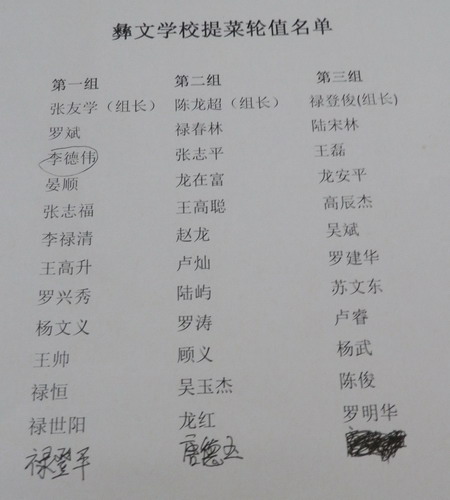 彝文学校提菜轮值名单
第一组 第二组 第三组
张友学（组长） 陈龙超（组长） 禄登俊(组长)
罗斌 禄春林 陆宋林
李德伟 张志平 王磊
晏顺 龙在富 龙安平
张志福 王高聪 高辰杰
李禄清 赵龙 吴斌
王高升 卢灿 罗建华
罗兴秀 陆屿 苏文东
杨文义 罗涛 卢睿
王帅 顾义 杨武
禄恒 吴玉杰 陈俊
禄世阳 龙红 罗明华
禄登军 唐德玉